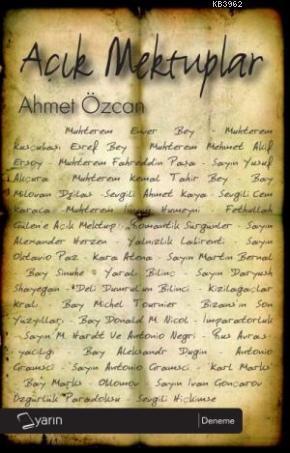 KB3962
Açık Mektuplar
Ahmet Özcan
Muhterem Enver Bey - Muhterem
Kuşçubaşı Eşref Bey - Muhterem Mehmet Akif
Ersoy - Muhterem Fahreddin Paşa - Sayın Yusuf
Akçura - Muhterem Kemal Tahir Bey - Bay
Milovan Djilas - Sevgili Ahmet Kaya - Sevgili Cem
Karaca - Muhterem Humeyni - Fethullah
Gülen'e Açık Mektup - Romantik Sürgünler - Sayın
Alexander Herzen - Yalnızlık Labirenti - Sayın
Oktavio Paz - Kara Atena - Sayın Martin Bernal
- Bay Sinuhe - Yaralı Bilinç - Sayın Daryush
Shayegan - "Deli Dumrul'un Bilinci - Kızılağaçlar
Kralı - Bay Michel Tournier - Bizans'ın Son
Yüzyılları - Bay Donald M. Nicol - İmparatorluk
- Sayın M. Hardt Ve Antonio Negri - Rus Avras-
yacılığı - Bay Aleksandr Dugin - Antonio
Gramsci - Sayın Antonio Gramsci - Karl Marks'
- Bay Marks - Oblomov - Sayın Ivan Goncarov -
Özgürlük Paradoksu - Sevgili Hiçkimse
yarın
Deneme